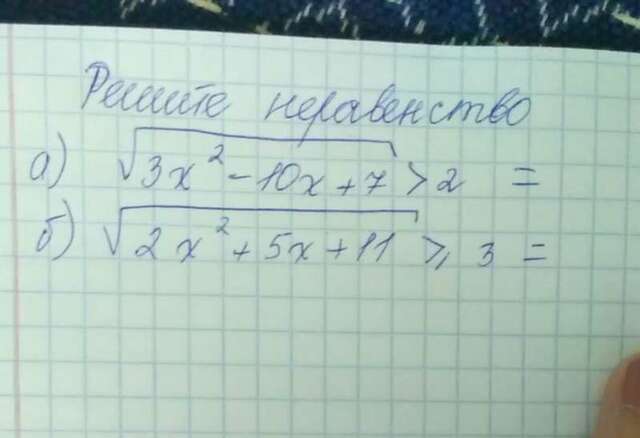 Решите неравенство
а) √3x² - 10x + 7 > 2 =
б) √2x² + 5x + 11 ⩾ 3 =